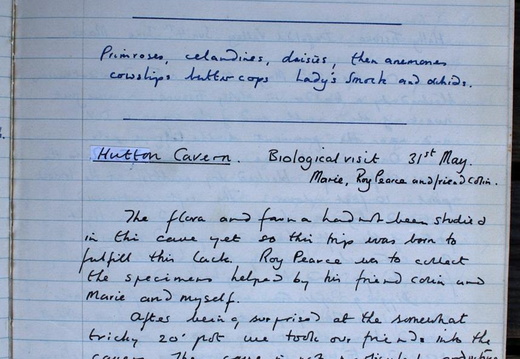 Primroses, celandines, daisies, then anemones
cowslips buttercups Lady's Smock and orchids.
Hutton Cavern. Biological visit 31st May.
Marie, Roy Pearce and friend Colin.
The flora and fauna had not been studied
in this cave yet so this trip was born to
fulfill this lack. Roy Pearce was to collect
the specimens helped by his friend Colin and
Marie and myself.
After being surprised at the somewhat
tricky 20' pot we took our friends into the
cavern. The cave is not